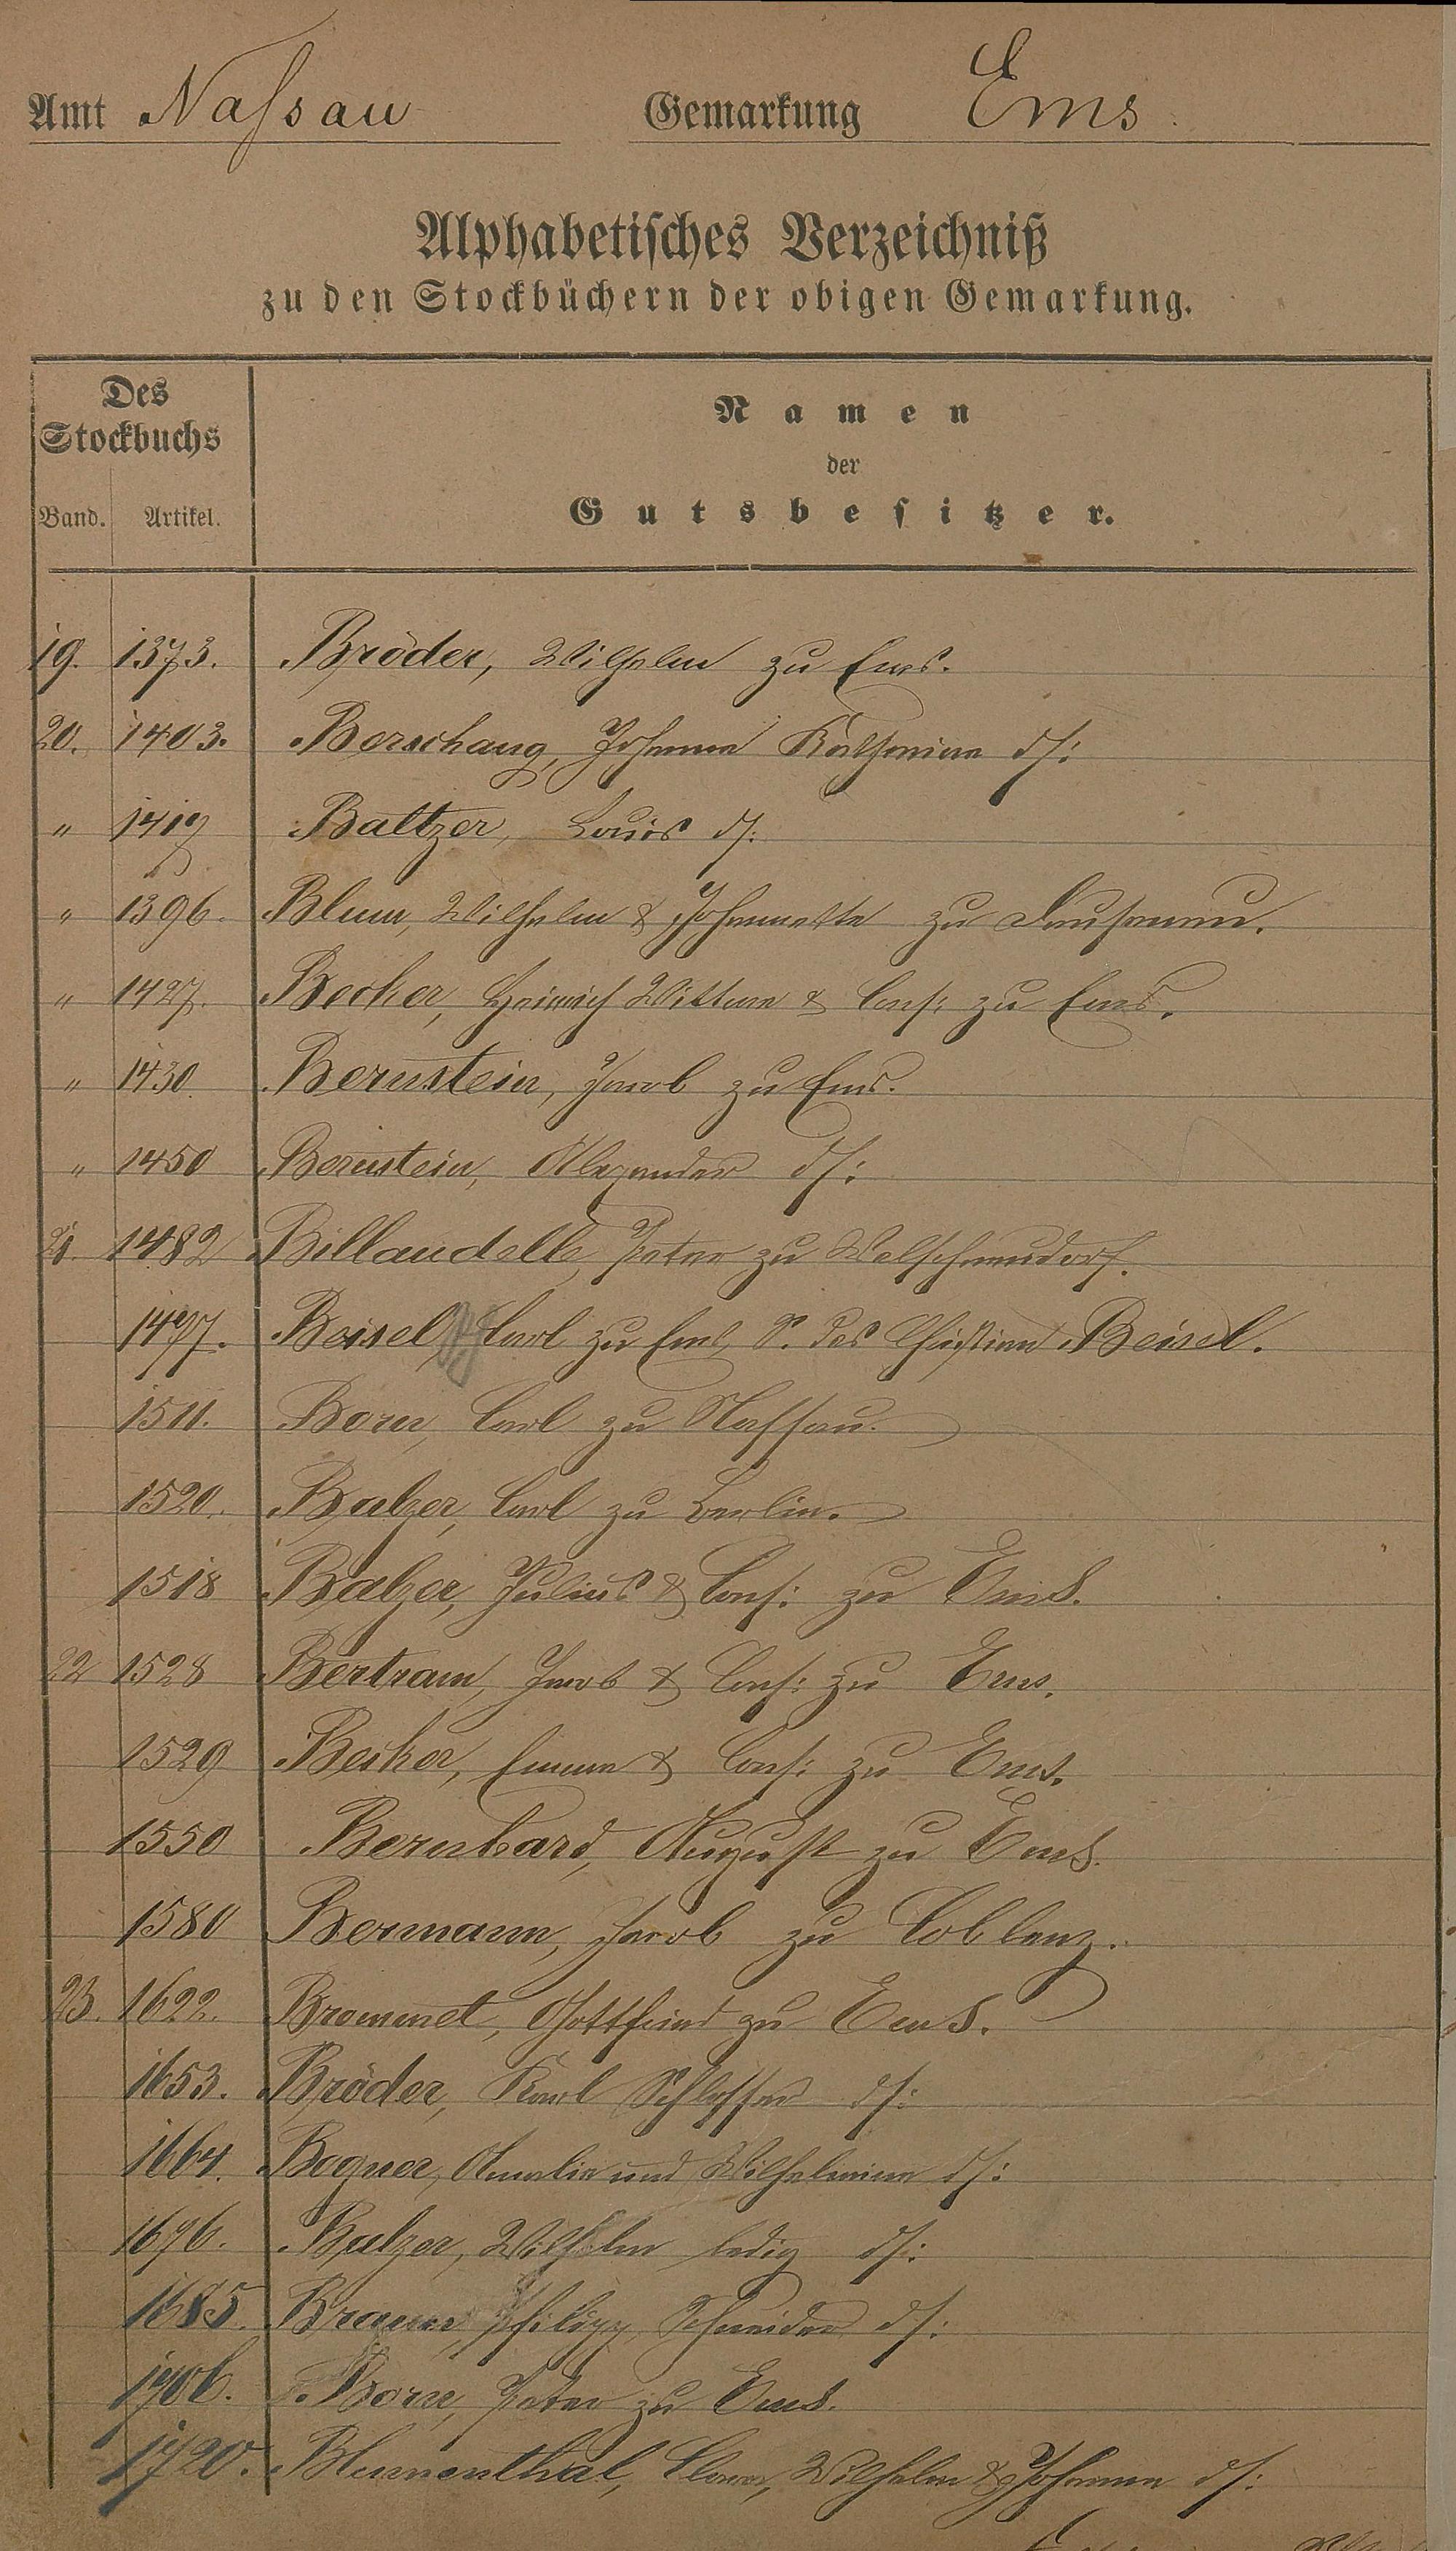 Amt Nassau Gemarkung Ems
Alphabetisches Verzeichniß
zu den Stockbüchern der obigen Gemarkung.
Des Stockbuchs
Band. Artikel.
Namen
der
Gutsbesitzer.
19. 1373. Bröder, Wilhelm zu Ems.
20. 1403. Berschang, Johanna Katharina ds:
" 1419 Baltzer, Louis ds.
" 1396. Blum, Wilhelm & Johannette zu Dausenau.
" 1427. Becker, Heinrich Wittwe & Cons: zu Ems.
" 1430. Bernstein, Jacob zu Ems.
" 1450 Bernstein, Alexander ds:
21. 1482 Billaudelle, Peter zu Welschneudorf.
1497. Beisel, Carl zu Ems, S. des Christian Beisel.
1511. Born, Carl zu Nassau.
1520. Balzer, Carl zu Berlin.
1518 Balzer, Julius & Cons: zu Ems.
22 1528 Bertram, Jacob & Cons: zu Ems.
1529 Becker, Emma & Cons: zu Ems.
1550 Bernhard, August zu Ems.
1580 Bermann, Jacob zu Coblenz.
23. 1622. Brommet, Gottfried zu Ems.
1653. Bröder, Karl Schlosser ds:
1664. Bogner, Amalie und Wilhelmine ds:
1676. Balzer, Wilhelm ledig ds:
1685. Braun, Philipp, Schneider ds:
1706. Born, Peter zu Ems.
1720. Blumenthal, Clara, Wilhelm & Johanna ds: